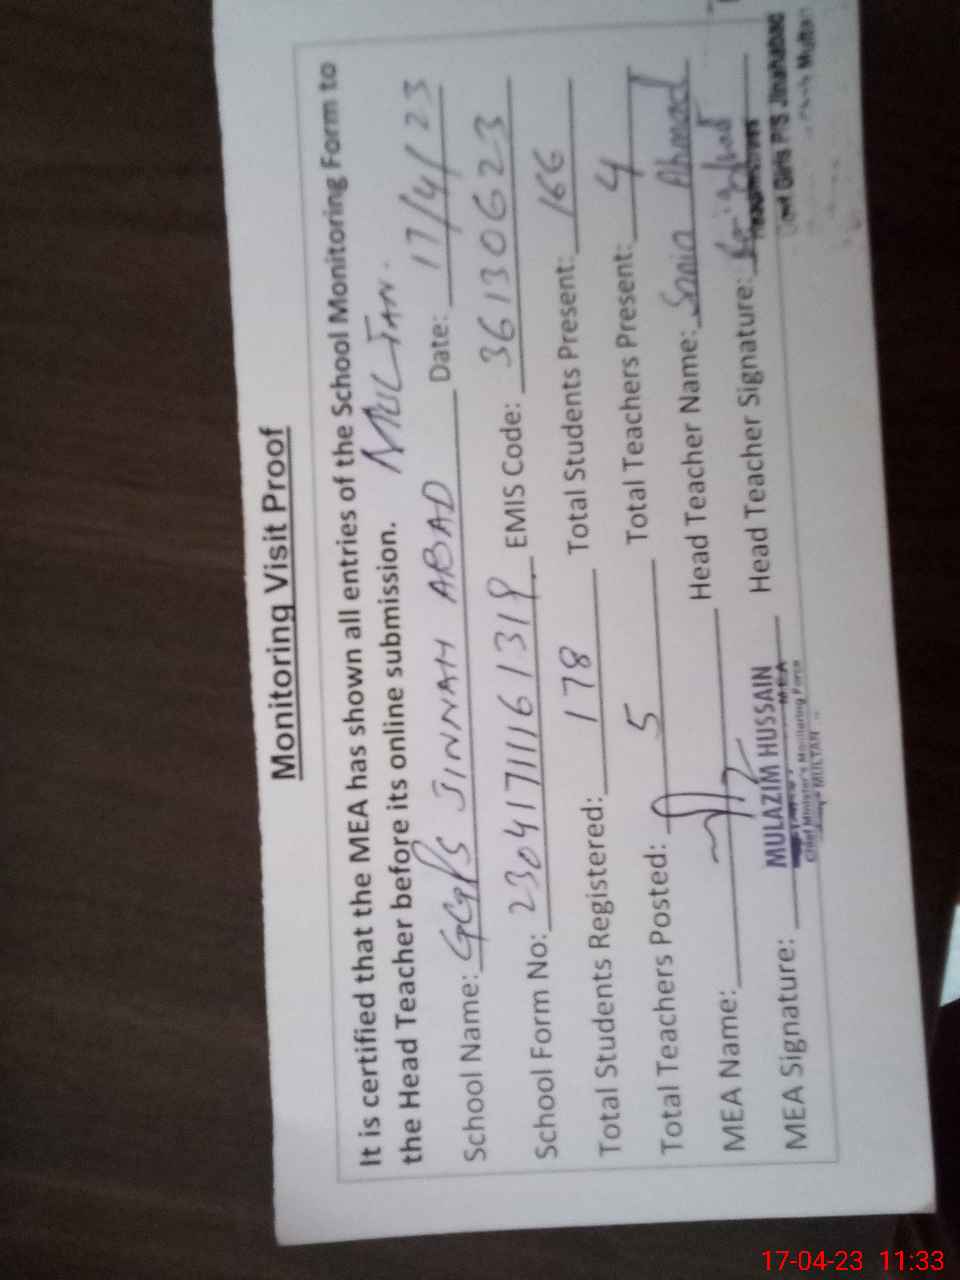 Monitoring Visit Proof
It is certified that the MEA has shown all entries of the School Monitoring Form to
the Head Teacher before its online submission. MULTAN.
School Name: GGPS JINNAH ABAD Date: 17/4/23
School Form No: EMIS Code: 36130623
Total Students Registered: 178 Total Students Present: 166
Total Teachers Posted: 5 Total Teachers Present: 4
MEA Name: Head Teacher Name: Sonia Ahmad
MEA Signature: MULAZIM HUSSAIN Head Teacher Signature:
MEA
Chief Minister's Monitoring Force
MULTAN
Girls P/S
Multan
17-04-23 11:33